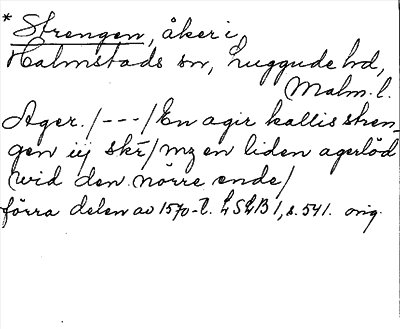 * Strengen, åker i
Halmstads sn, Luggude hd,
Malm. l.
Ager. /---/ En agir kallis stren-
gen iij skr̄ / mz en liden agerlöd
wid den nörre ende /
förra delen av 1570-t. LSLB 1, s. 541. orig.